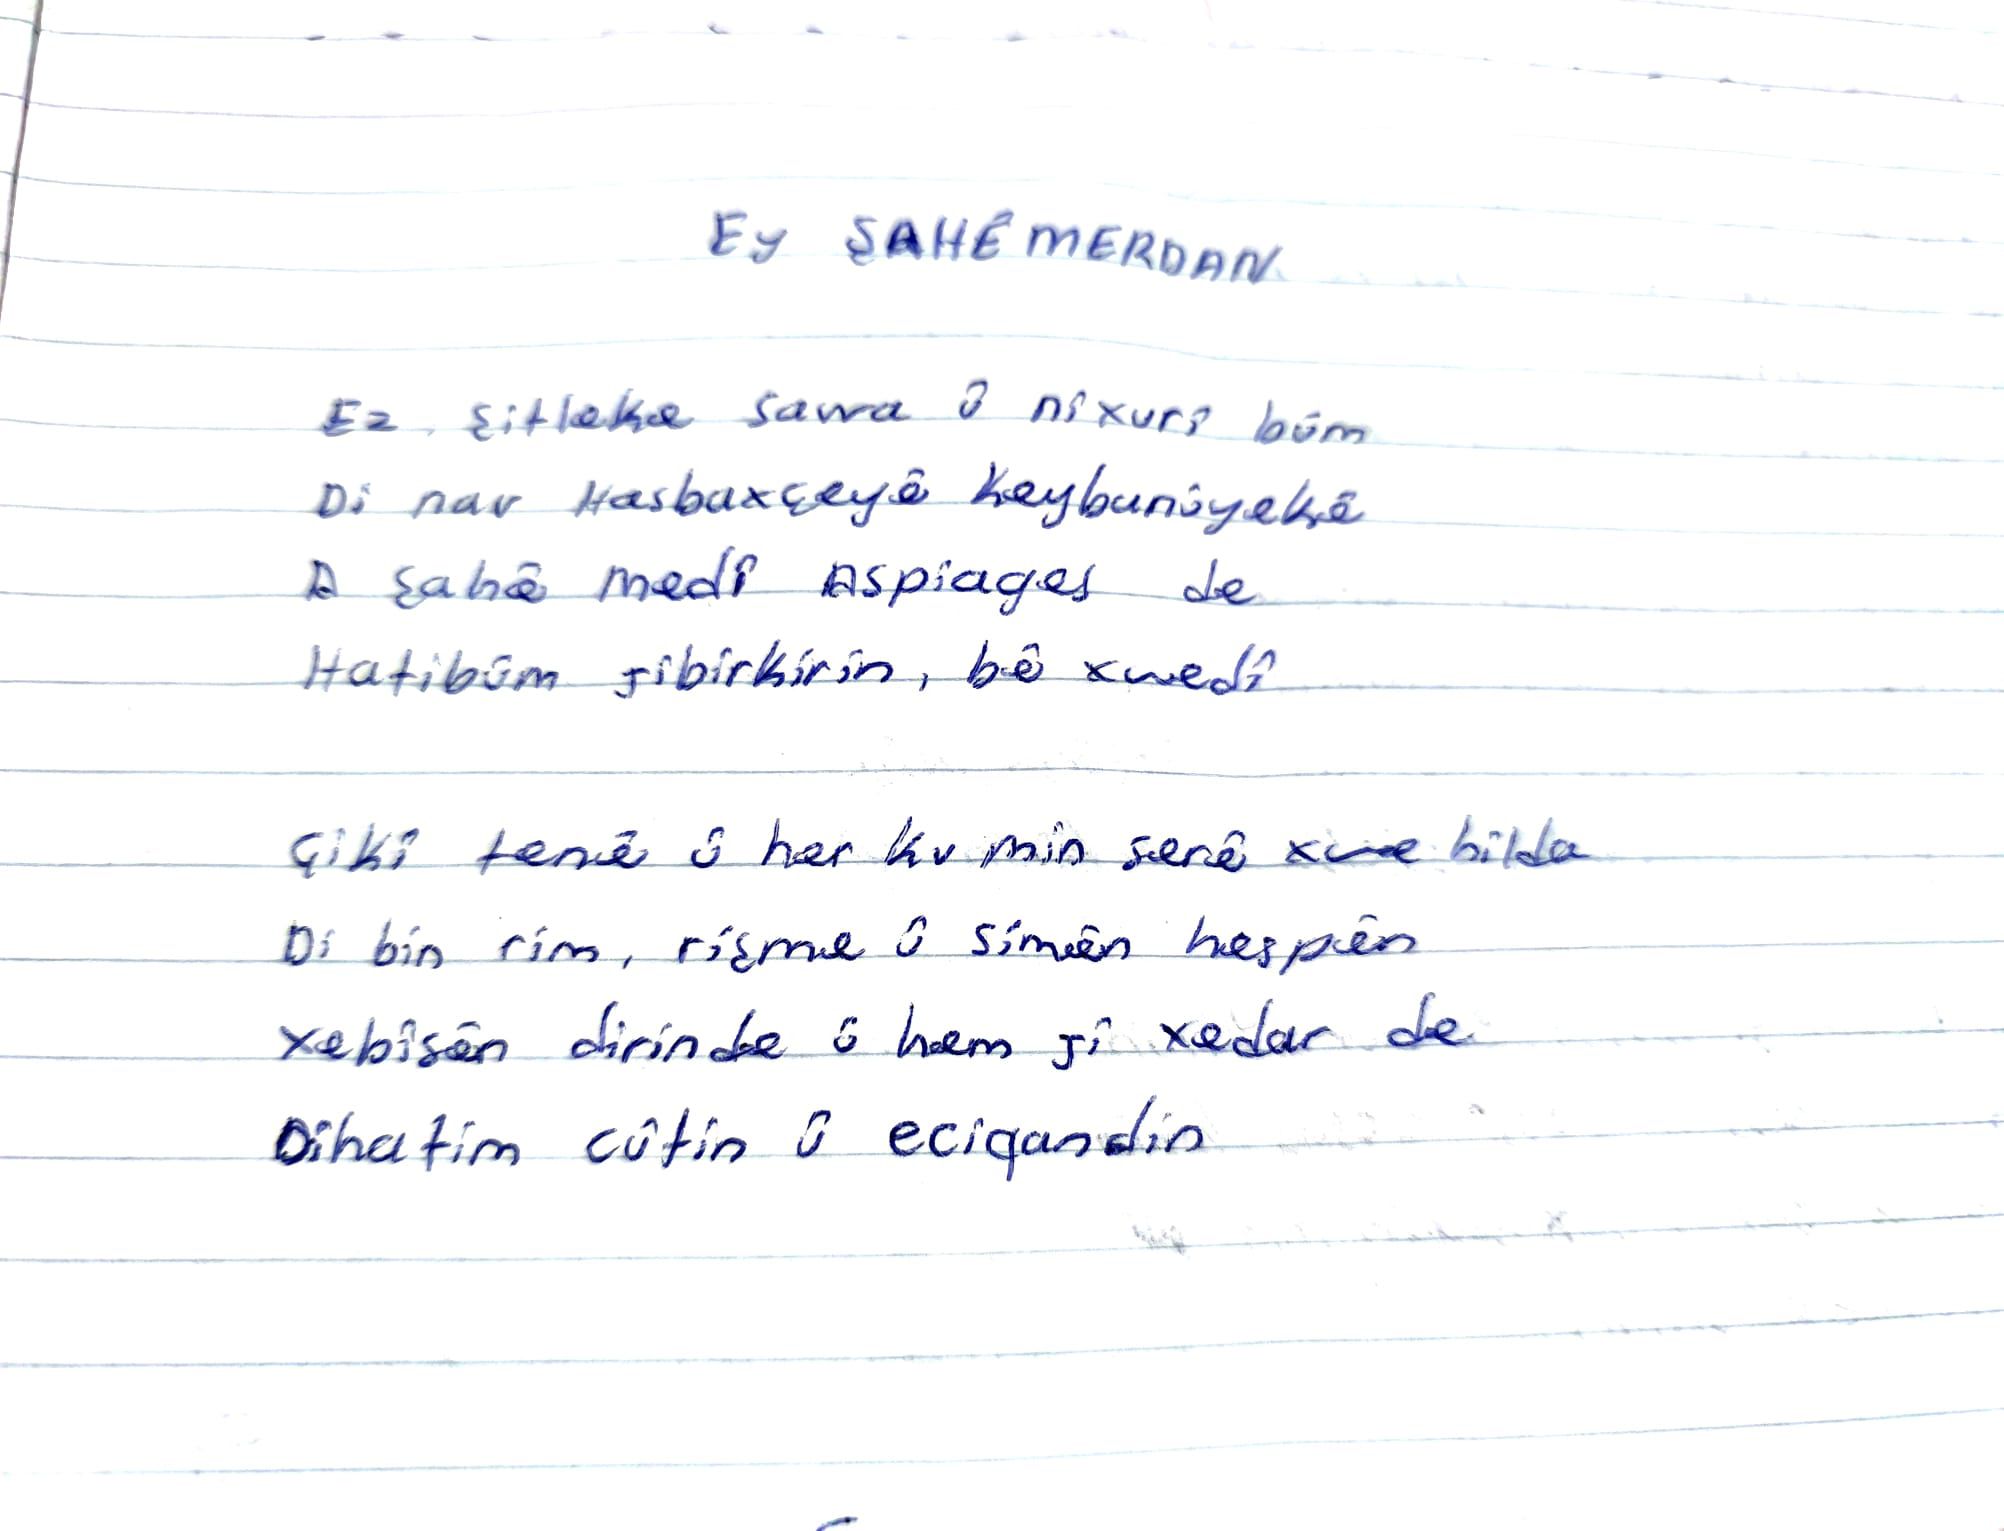 Ey ŞAHÊ MERDAN
Ez şitleke sawa û nixurî bûm
Di nav Hasbaxçeyê Keybanûyekê
A şahê Medî Aspiages de
Hatibûm jibirkirin, bê xwedî
Çikî tenê û her ku min serê xwe bilda
Di bin rim, rişme û simên hespên
Xebîsên dirinde û hem jî xedar de
Dihatim cûtin û eciqandin